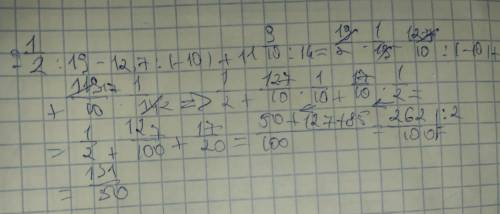 9 1/2 : 19 - 12,7 : (-10) + 11 9/10 : 14 = 19/2 · 1/19 - 127/10 : (-10) +
+ 119 17/10 · 1/14 2 => 1/2 + 127/10 · 1/10 + 17/10 · 1/2 =
= 1/2 + 127/100 + 17/20 = 50+127+85/100 = 262/100 |:2
= 131/50